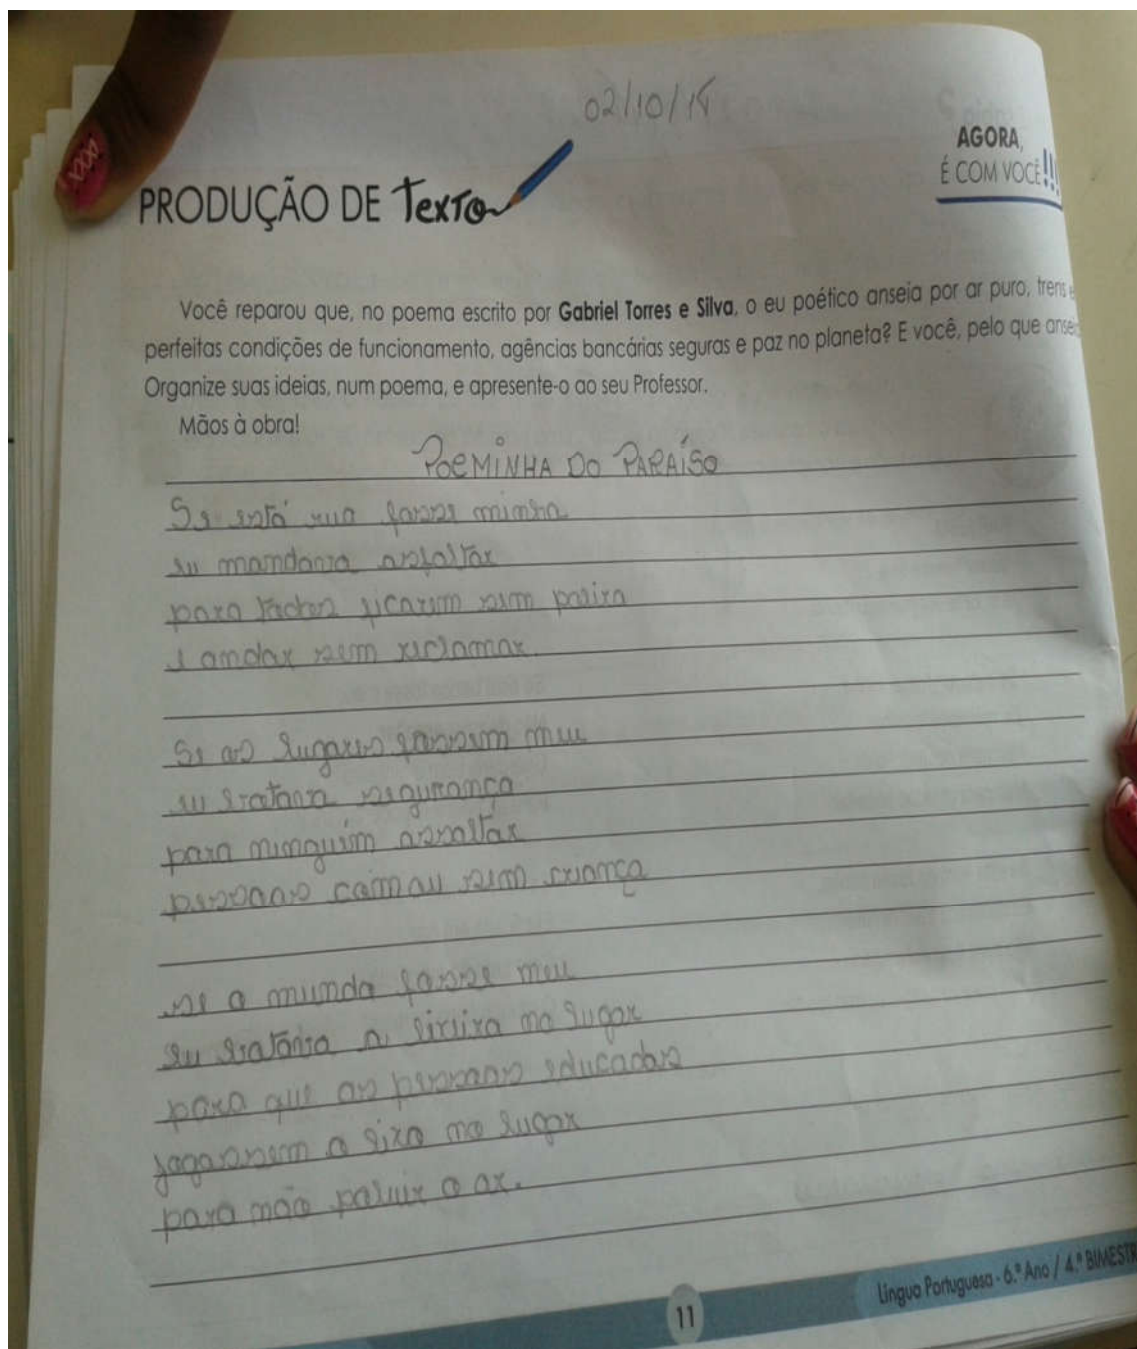 02/10/14
AGORA,
É COM VOCÊ!!!
PRODUÇÃO DE TEXTO
Você reparou que, no poema escrito por Gabriel Torres e Silva, o eu poético anseia por ar puro, trens e
perfeitas condições de funcionamento, agências bancárias seguras e paz no planeta? E você, pelo que anseia
Organize suas ideias, num poema, e apresente-o ao seu Professor.
Mãos à obra!
POEMINHA DO PARAÍSO
Se está rua fosse minha
eu mandaria asfaltar
para ficarem sem poeira
e andar sem reclamar.
Se os lugares fossem meu
eu segurança
para ninguém assaltar
pessoas com ou sem criança
se o mundo fosse meu
eu a lixeira no lugar
para que as pessoas educadas
jogassem o lixo no lugar
para não poluir o ar.
11
Língua Portuguesa - 6.º Ano / 4.º BIMESTR